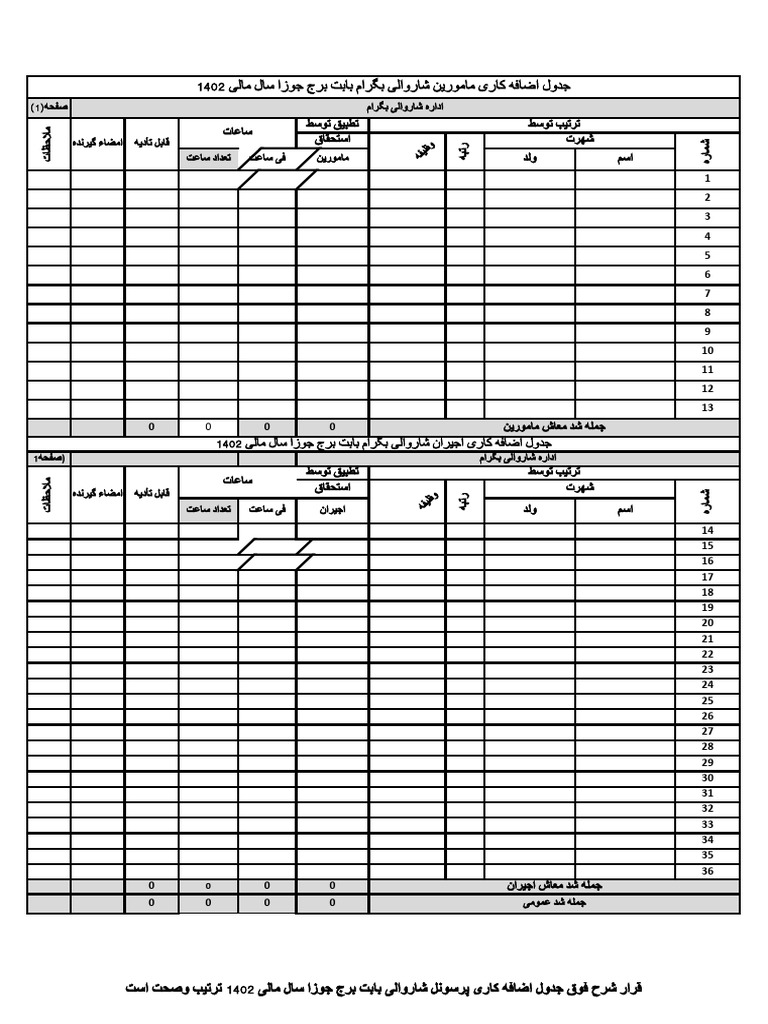 جدول اضافه کاری مامورین شاروالی بگرام بابت برج جوزا سال مالی 1402
اداره شاروالی بگرام صفحه(1)
ترتیب توسط تطبیق توسط ساعات قابل تأدیه امضاء گیرنده ملاحظات
شماره شهرت رتبه وظیفه استحقاق
اسم ولد مامورین فی ساعت تعداد ساعت
1
2
3
4
5
6
7
8
9
10
11
12
13
جمله شد معاش مامورین 0 0 0 0
جدول اضافه کاری اجیران شاروالی بگرام بابت برج جوزا سال مالی 1402
اداره شاروالی بگرام (صفحه1
ترتیب توسط تطبیق توسط ساعات قابل تأدیه امضاء گیرنده ملاحظات
شماره شهرت رتبه وظیفه استحقاق
اسم ولد اجیران فی ساعت تعداد ساعت
14
15
16
17
18
19
20
21
22
23
24
25
26
27
28
29
30
31
32
33
34
35
36
جمله شد معاش اجیران 0 0 0 0
جمله شد عمومی 0 0 0 0
قرار شرح فوق جدول اضافه کاری پرسونل شاروالی بابت برج جوزا سال مالی 1402 ترتیب وصحت است